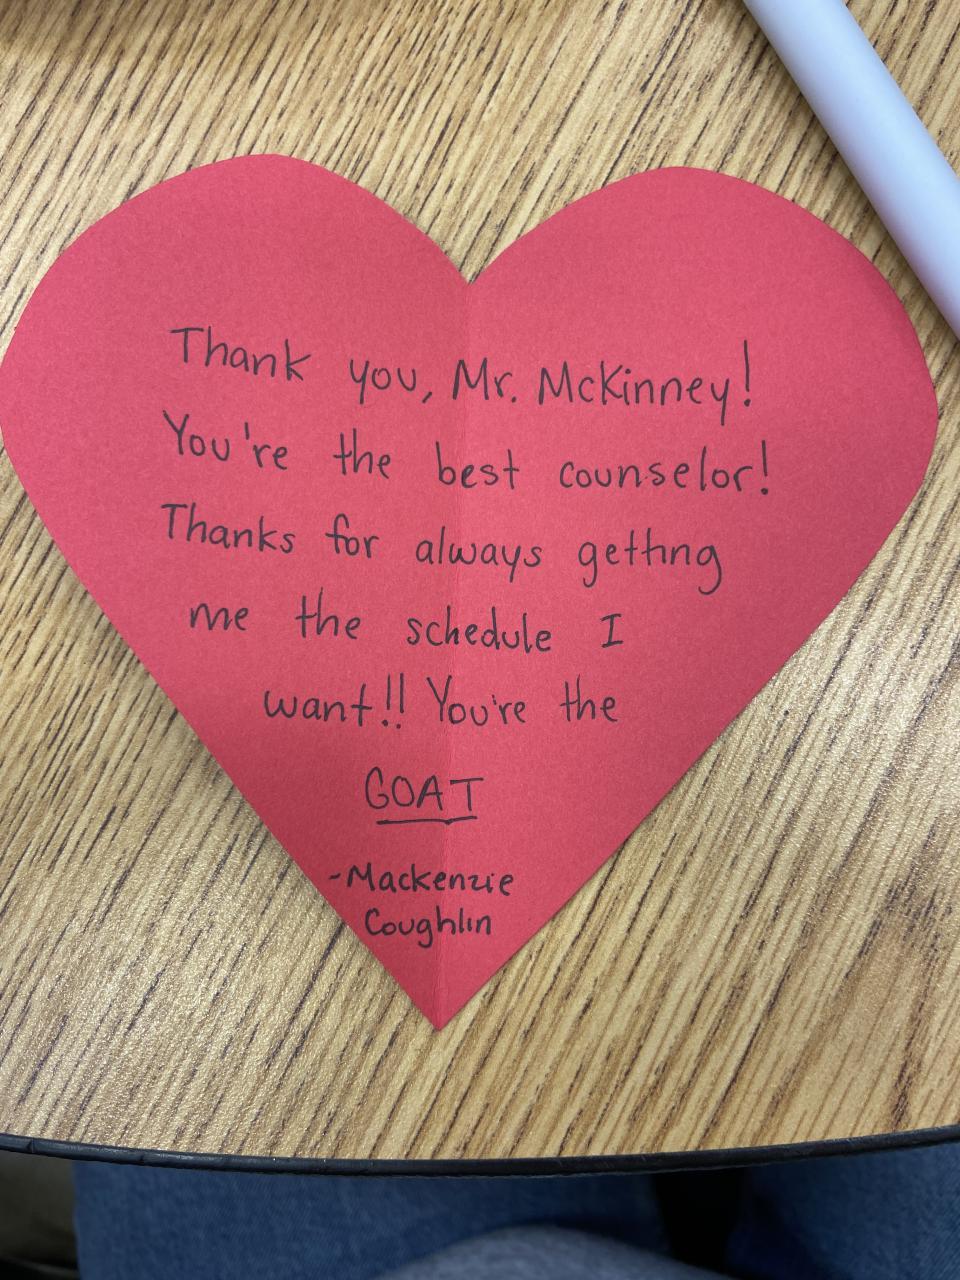 Thank you, Mr. McKinney!
You're the best counselor!
Thanks for always getting
me the schedule I
want!! You're the
GOAT
-Mackenzie
Coughlin